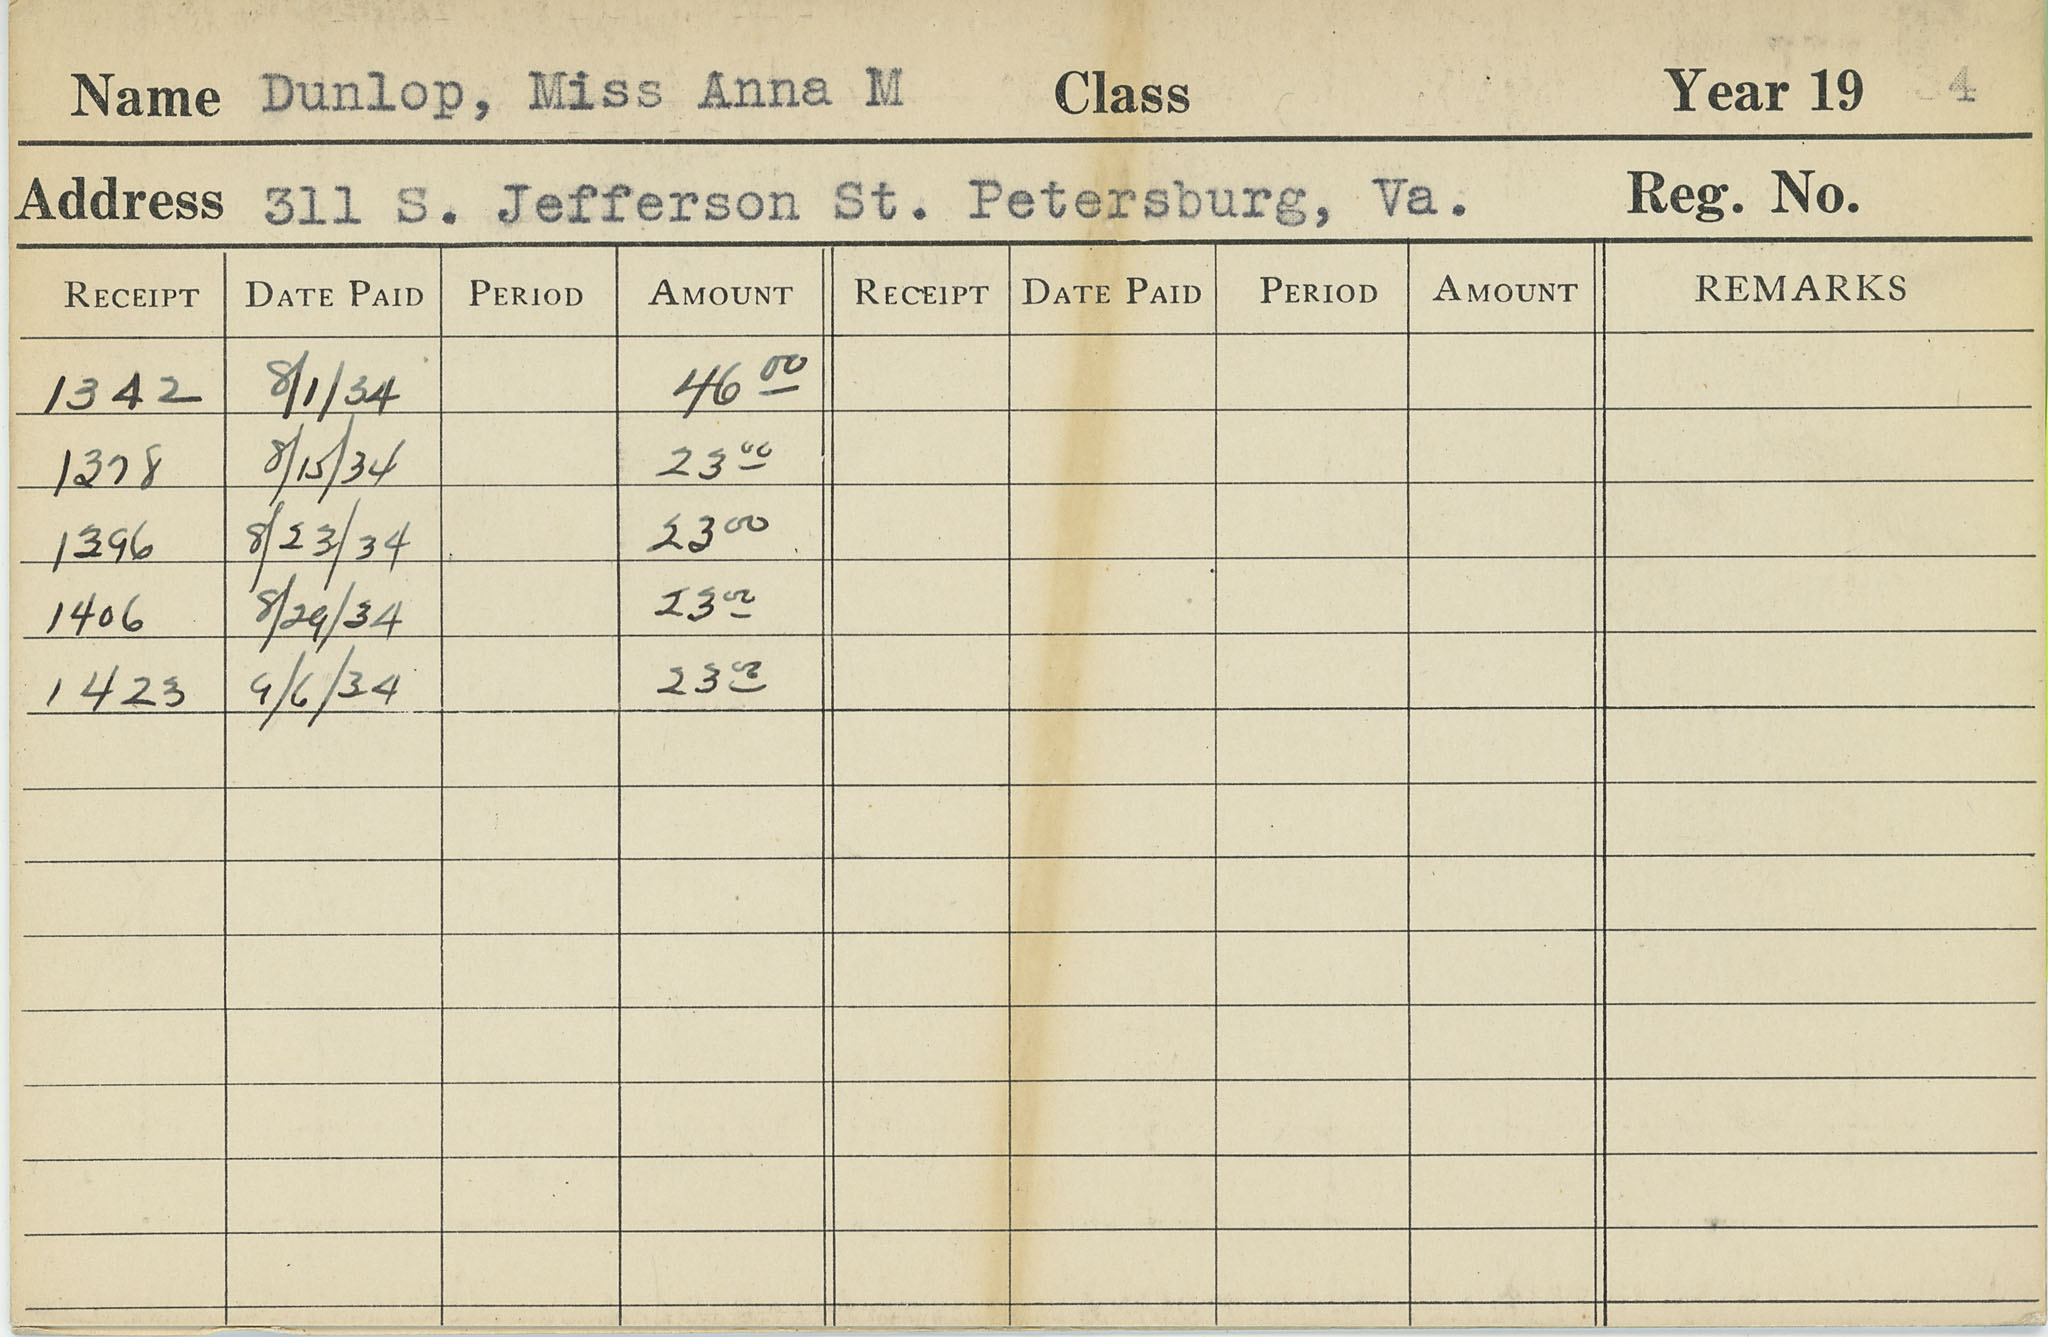 Name Dunlop, Miss Anna M Class Year 19 34
Address 311 S. Jefferson St. Petersburg, Va. Reg. No.
RECEIPT DATE PAID PERIOD AMOUNT RECEIPT DATE PAID PERIOD AMOUNT REMARKS
1342 8/1/34 46 00
1378 8/15/34 23 00
1396 8/23/34 23 00
1406 8/29/34 23 00
1423 9/6/34 23 00